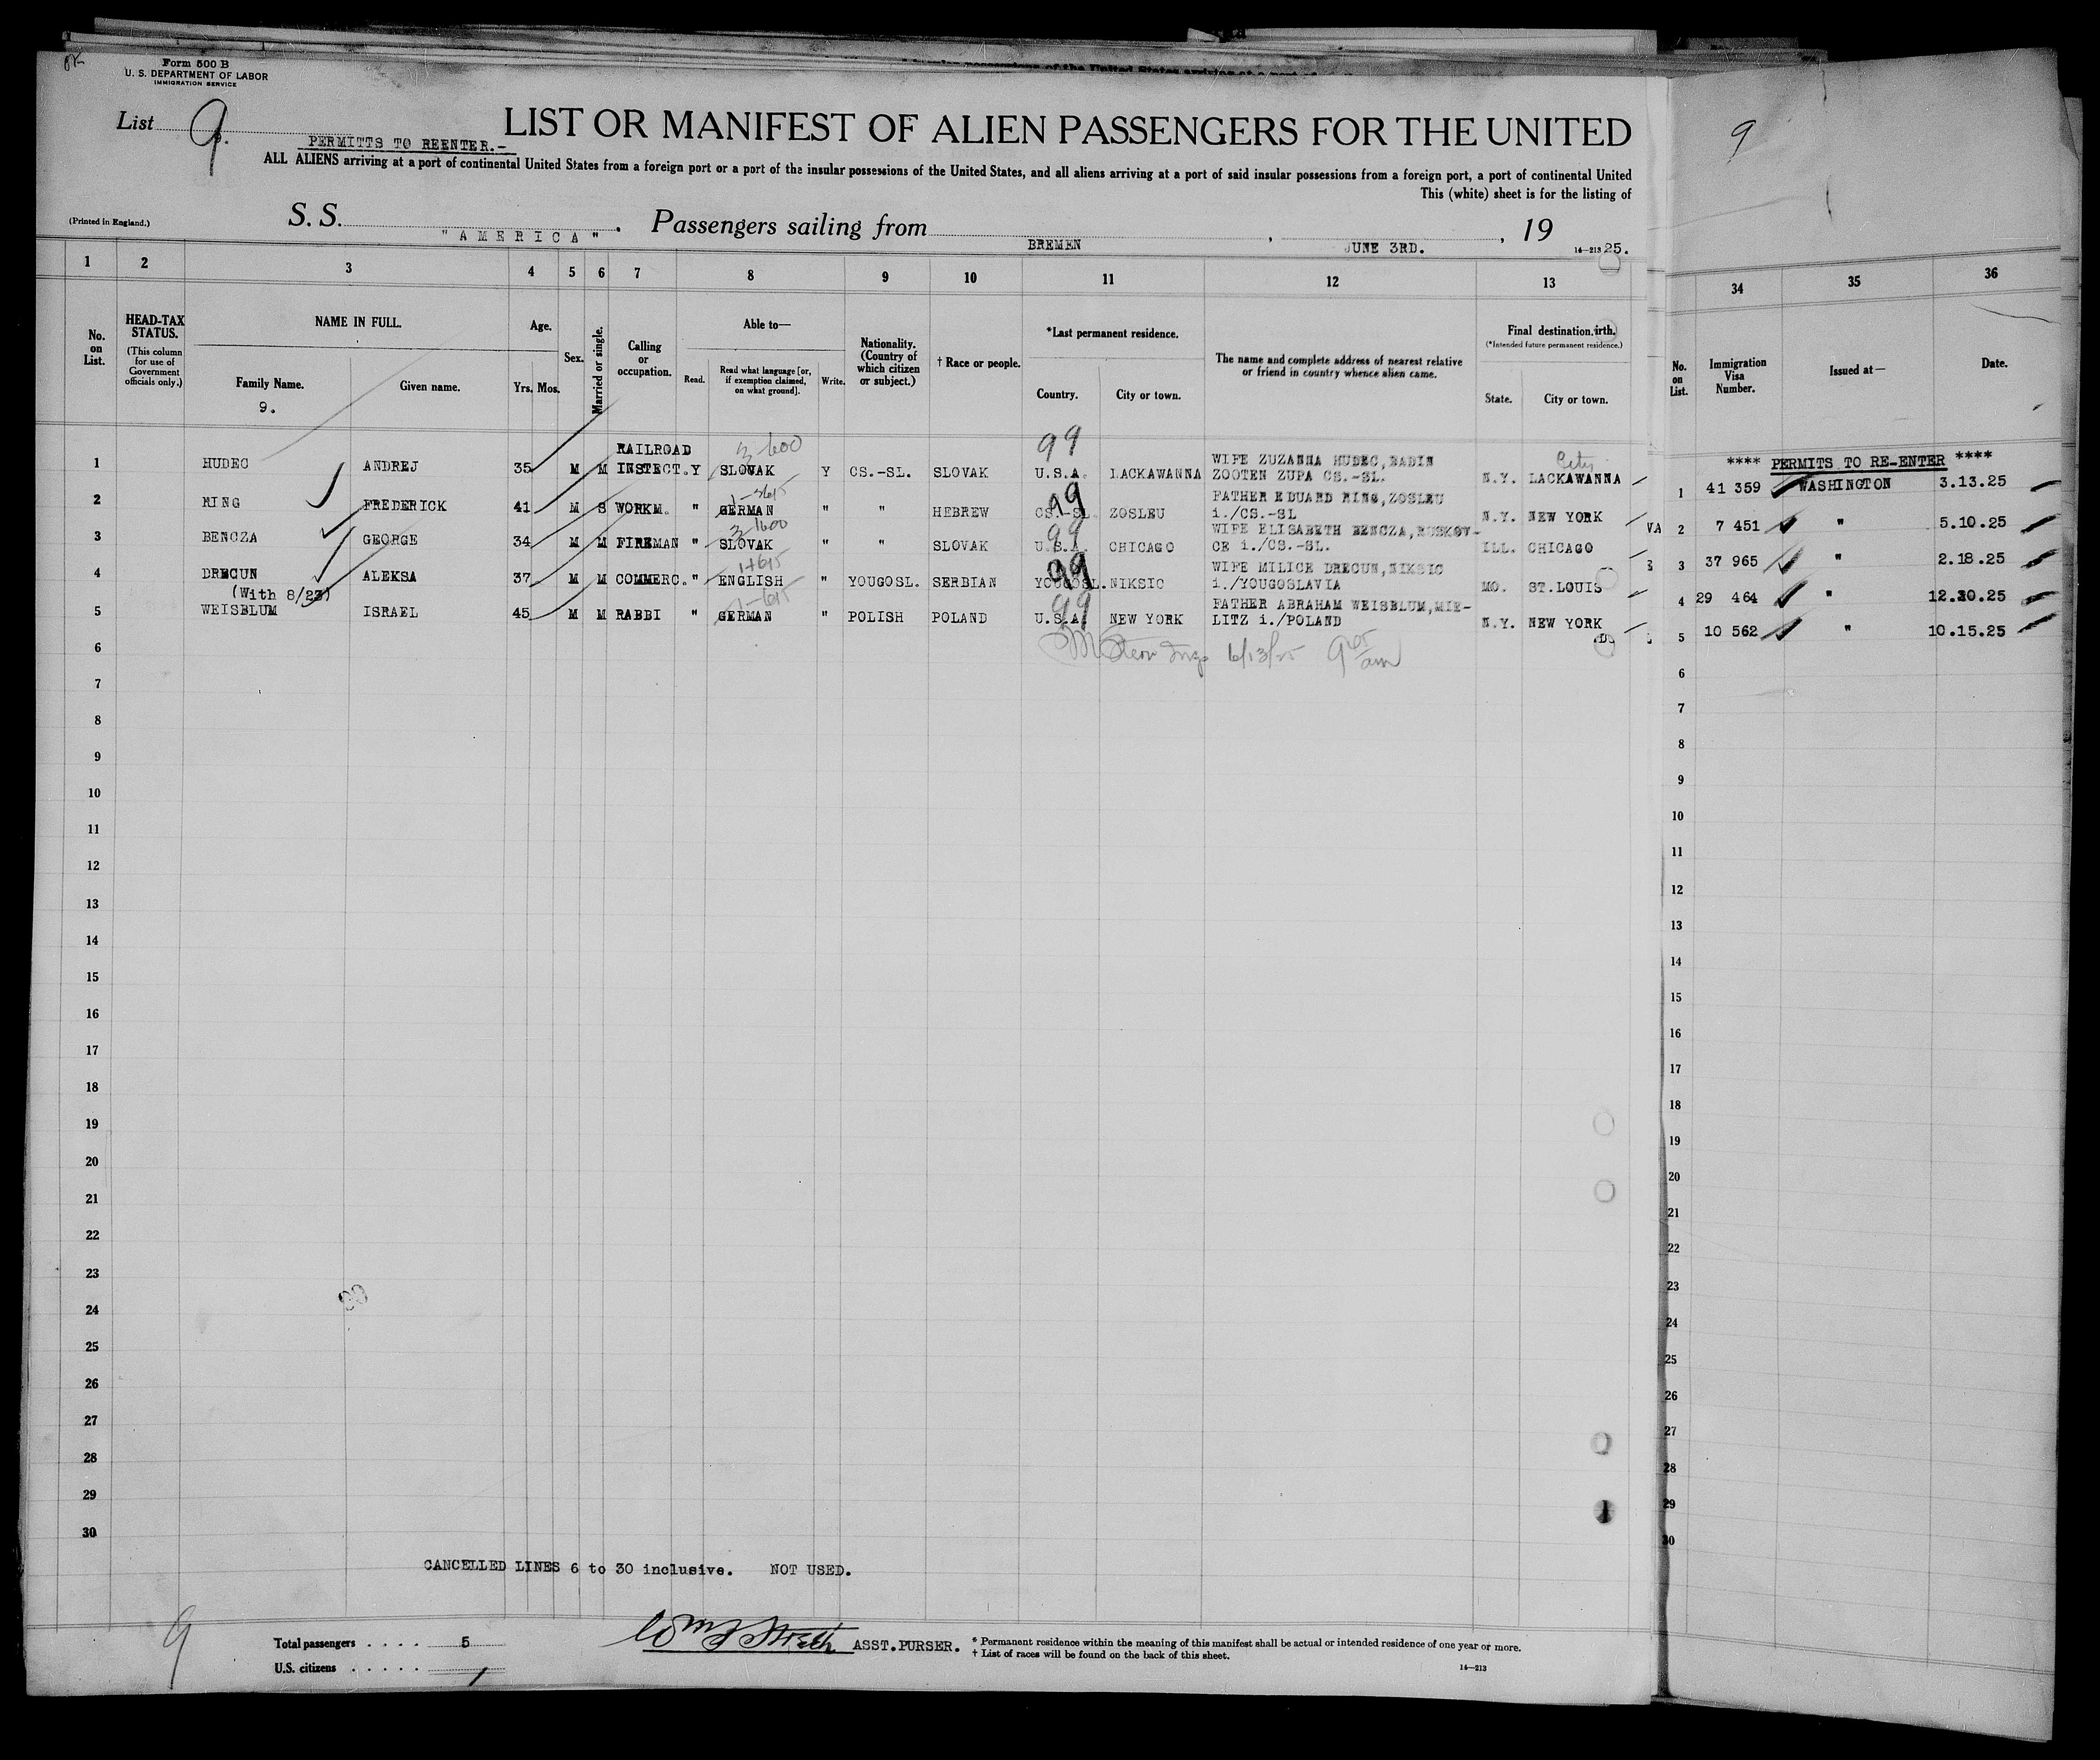 Form 500 B
U. S. DEPARTMENT OF LABOR
IMMIGRATION SERVICE
List 9.
PERMITTS TO REENTER.-
LIST OR MANIFEST OF ALIEN PASSENGERS FOR THE UNITED
ALL ALIENS arriving at a port of continental United States from a foreign port or a port of the insular possessions of the United States, and all aliens arriving at a port of said insular possessions from a foreign port, a port of continental United
This (white) sheet is for the listing of
(Printed in England.) S. S. "AMERICA". Passengers sailing from BREMEN, JUNE 3RD., 19 25.
14-213
1 2 3 4 5 6 7 8 9 10 11 12 13
No. on List.
HEAD-TAX STATUS.
(This column for use of Government officials only.)
NAME IN FULL.
Family Name. Given name.
9.
Age.
Yrs. Mos.
Sex.
Married or single.
Calling or occupation.
Able to—
Read. Read what language [or, if exemption claimed, on what ground]. Write.
Nationality. (Country of which citizen or subject.)
† Race or people.
*Last permanent residence.
Country. City or town.
The name and complete address of nearest relative or friend in country whence alien came.
Final destination.
irth.
(*Intended future permanent residence.)
State. City or town.
3-600 99 City
1 HUDEC ANDREJ 35 M M RAILROAD INSTECT. Y SLOVAK Y CS.-SL. SLOVAK U.S.A. LACKAWANNA WIFE ZUZANNA HUDEC, BADIN ZOOTEN ZUPA CS.-SL. N.Y. LACKAWANNA
99
2 RING FREDERICK 41 M S WORKM. " GERMAN " " HEBREW CS.-SL. ZOSLEU FATHER EDUARD RING, ZOSLEU i./CS.-SL N.Y. NEW YORK
3-600 99
3 BENCZA GEORGE 34 M M FIREMAN " SLOVAK " " SLOVAK U.S.A. CHICAGO WIFE ELISABETH BENCZA, RUSKOV-CE i./CS.-SL. ILL. CHICAGO
99
4 DRECUN ALEKSA 37 M M COMMERC. " ENGLISH " YOUGOSL. SERBIAN YOUGOSL. NIKSIC WIFE MILICE DRECUN, NIKSIC i./YOUGOSLAVIA MO. ST.LOUIS
(With 8/23)
99
5 WEISBLUM ISRAEL 45 M M RABBI " GERMAN " POLISH POLAND U.S.A. NEW YORK FATHER ABRAHAM WEISBLUM, MIE-LITZ i./POLAND N.Y. NEW YORK
6 6/13/25 9 05 am
7
8
9
10
11
12
13
14
15
16
17
18
19
20
21
22
23
24
25
26
27
28
29
30
CANCELLED LINES 6 to 30 inclusive. NOT USED.
9
Total passengers . . . . 5
U.S. citizens . . . . . /
ASST.PURSER.
* Permanent residence within the meaning of this manifest shall be actual or intended residence of one year or more.
† List of races will be found on the back of this sheet.
14-213
9
34 35 36
No. on List. Immigration Visa Number. Issued at— Date.
**** PERMITS TO RE-ENTER ****
1 41 359 WASHINGTON 3.13.25
VA 2 7 451 " 5.10.25
3 37 965 " 2.18.25
4 29 464 " 12.30.25
5 10 562 " 10.15.25
6
7
8
9
10
11
12
13
14
15
16
17
18
19
20
21
22
23
24
25
26
27
28
29
30